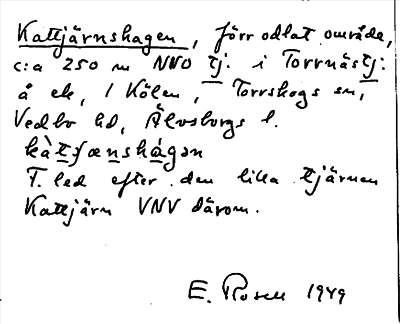 Kattjärnshagen, förr odlat område,
c:a 250 m NNO tj. i Torrnästj:
å ek, i Kölen, Torrskogs sn,
Vedbo hd, Älvsborgs l.
T. led efter den lilla tjärnen
Kattjärn VNV därom.
E. Rosell 1949